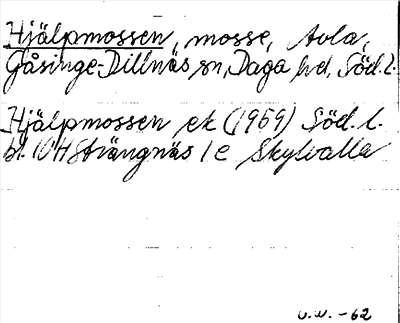 Hjälpmossen, mosse, Avla,
Gåsinge-Dillnäs sn, Daga hd, Söd.l.
Hjälpmossen ek (1959) Söd.l.
bl. 10H Strängnäs 1e Skylvalla
U.W. -62